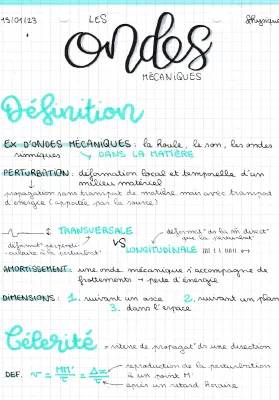 13/01/23 LES physique
ondes
MÉCANIQUES
Définition
EX D'ONDES MÉCANIQUES : la houle, le son, les ondes
sismiques DANS LA MATIÈRE
PERTURBATION : déformation local et temporelle d'un
milieu matériel
propagation sans transport de matière mais avec transport
d'énergie (apportée par la source)
TRANSVERSALE
déformat° perpendi-
culaire à la perturbat°
VS
déformat° ds la m direct°
que la perturbat°
LONGITUDINALE
AMORTISSEMENT : une onde mécanique s'accompagne de
frottements → perte d'énergie
DIMENSIONS : 1. suivant un axe 2. suivant un plan
3. dans l'espace
Célérité = vitesse de propagat° ds une direction
DEF. v = MM'/τ = Δx/τ
reproduction de la perturbation
à un point M'
après un retard horaire